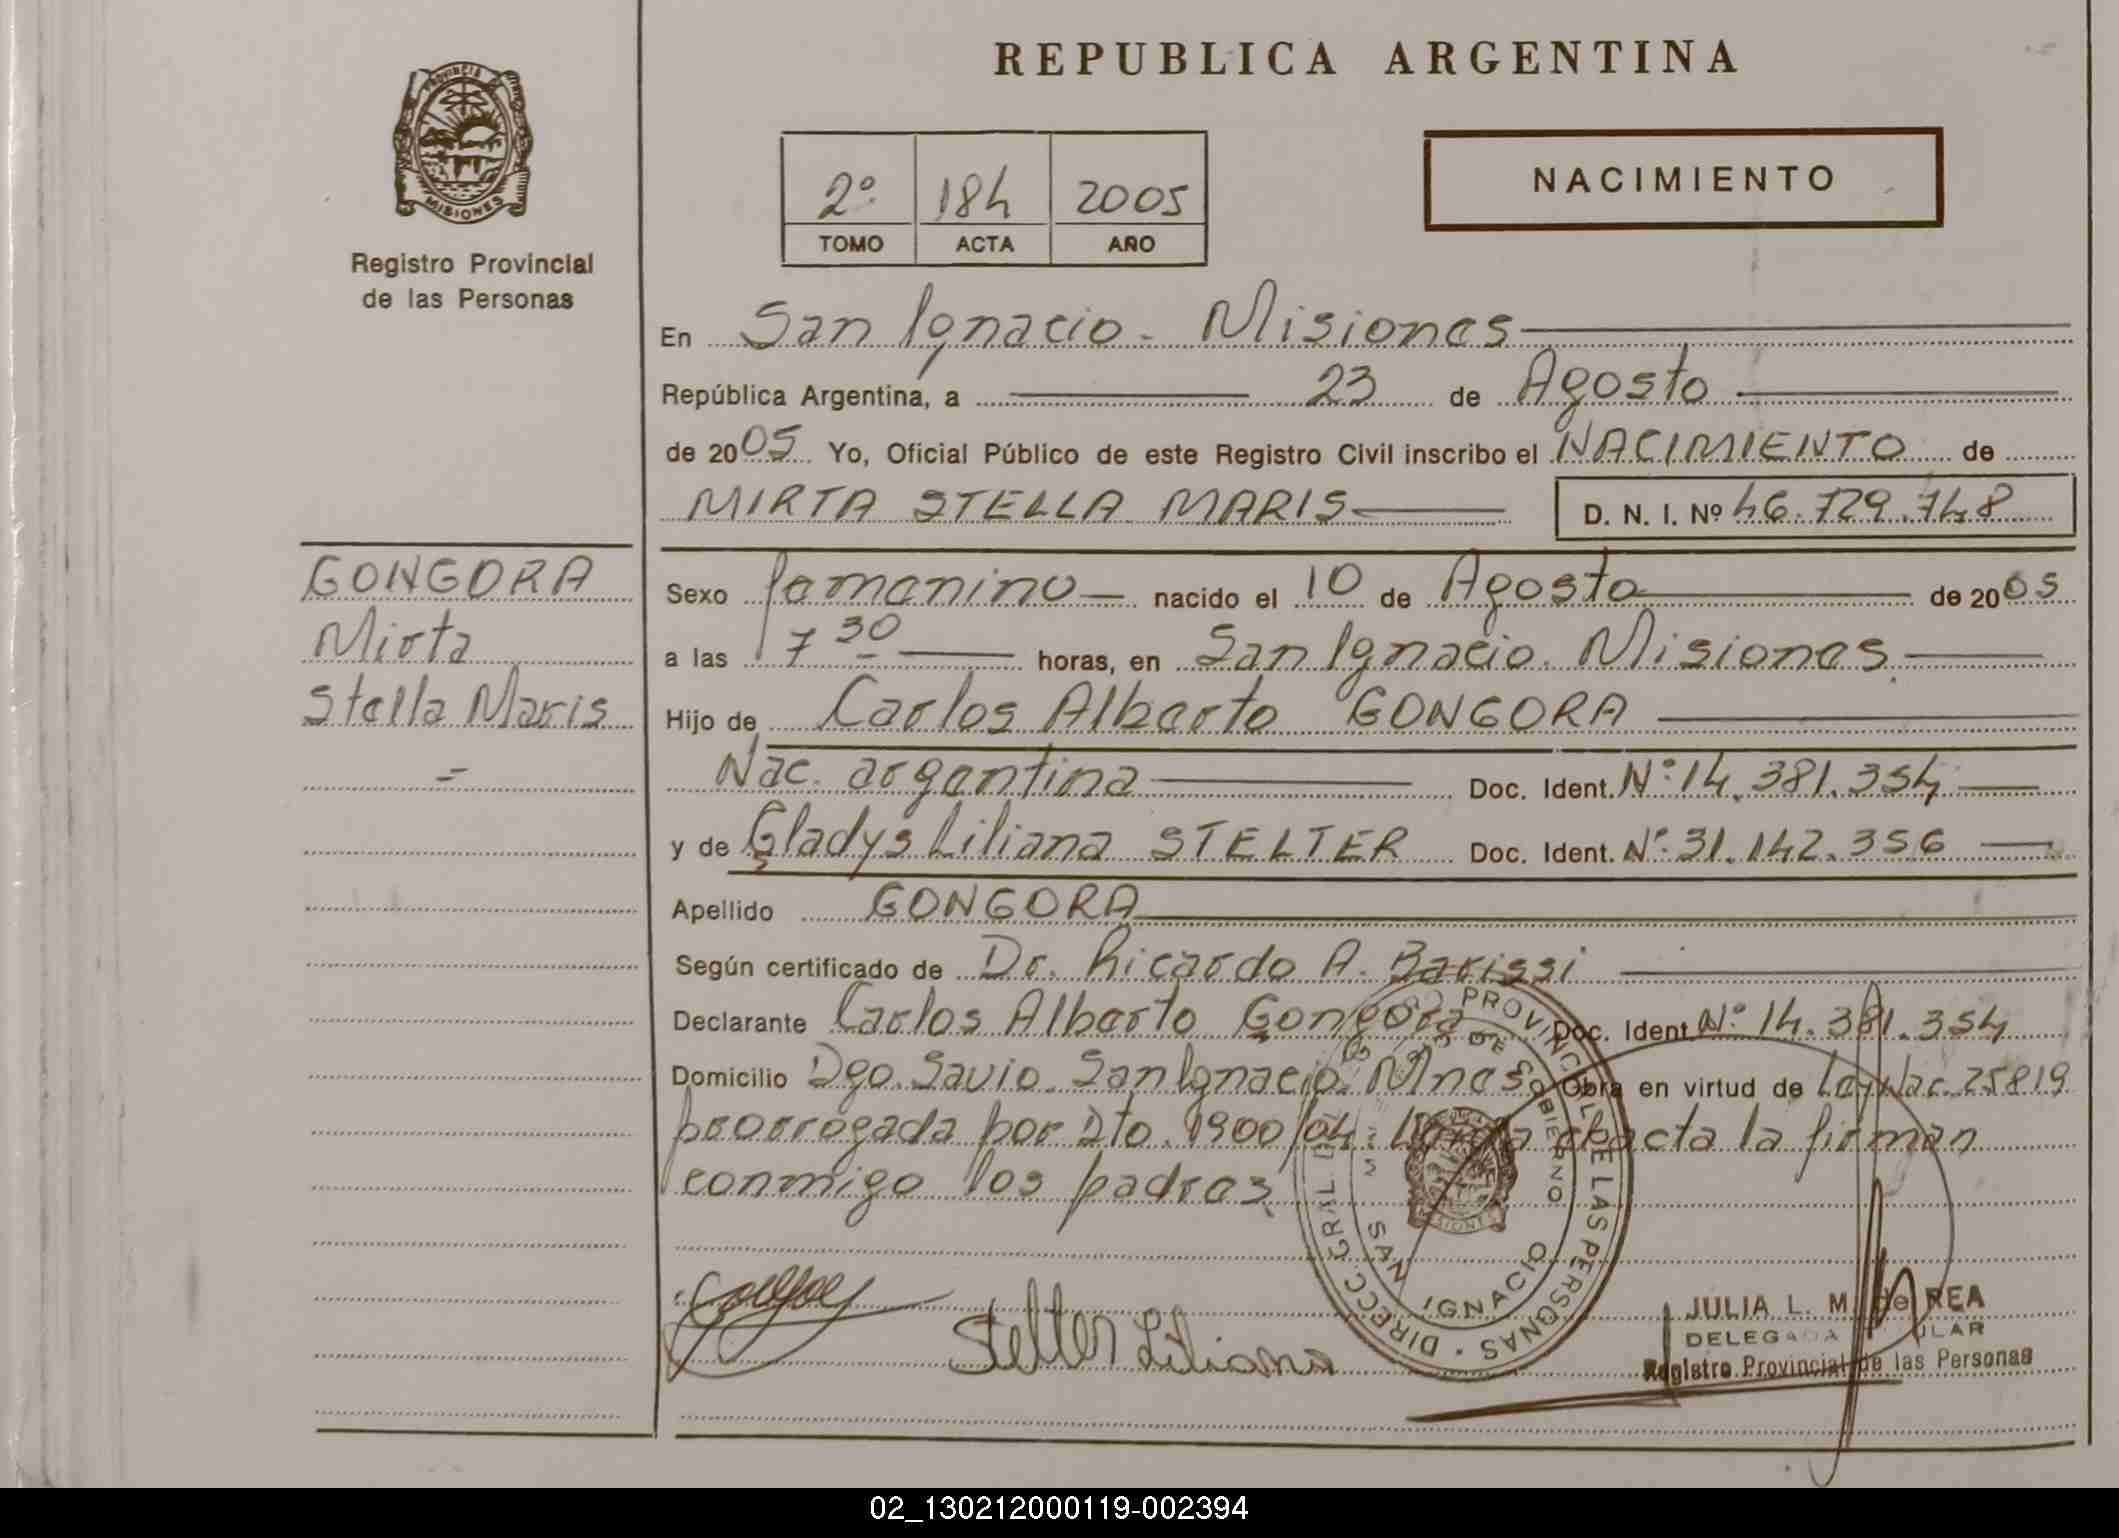 REPUBLICA ARGENTINA
PROVINCIA DE
MISIONES
Registro Provincial
de las Personas
2º 184 2005
TOMO ACTA AÑO
NACIMIENTO
En San Ignacio - Misiones
República Argentina, a 23 de Agosto
de 2005 Yo, Oficial Público de este Registro Civil inscribo el NACIMIENTO de
MIRTA STELLA MARIS D. N. I. Nº 46.729.748
GONGORA
Mirta
Stella Maris
Sexo femenino nacido el 10 de Agosto de 2005
a las 7 30 horas, en San Ignacio. Misiones
Hijo de Carlos Alberto GONGORA
Nac. argentina Doc. Ident. Nº 14.381.354
y de Gladys Liliana STELTER Doc. Ident. Nº 31.142.356
Apellido GONGORA
Según certificado de Dr. Ricardo A. Barissi
Declarante Carlos Alberto Gongora Doc. Ident. Nº 14.381.354
Domicilio Dgo. Savio. San Ignacio. Mnes. Obra en virtud de Ley Nac. 25819
prorrogada por Dto. 1900/04. el acta la firman
conmigo los padres.
DIRECC. GRAL. DEL PROVINCIAL DE LAS PERSONAS
DE GOBIERNO
SAN IGNACIO
Stelter Liliana
JULIA L. M. de REA
DELEGADA TITULAR
Registro Provincial de las Personas
02_130212000119-002394